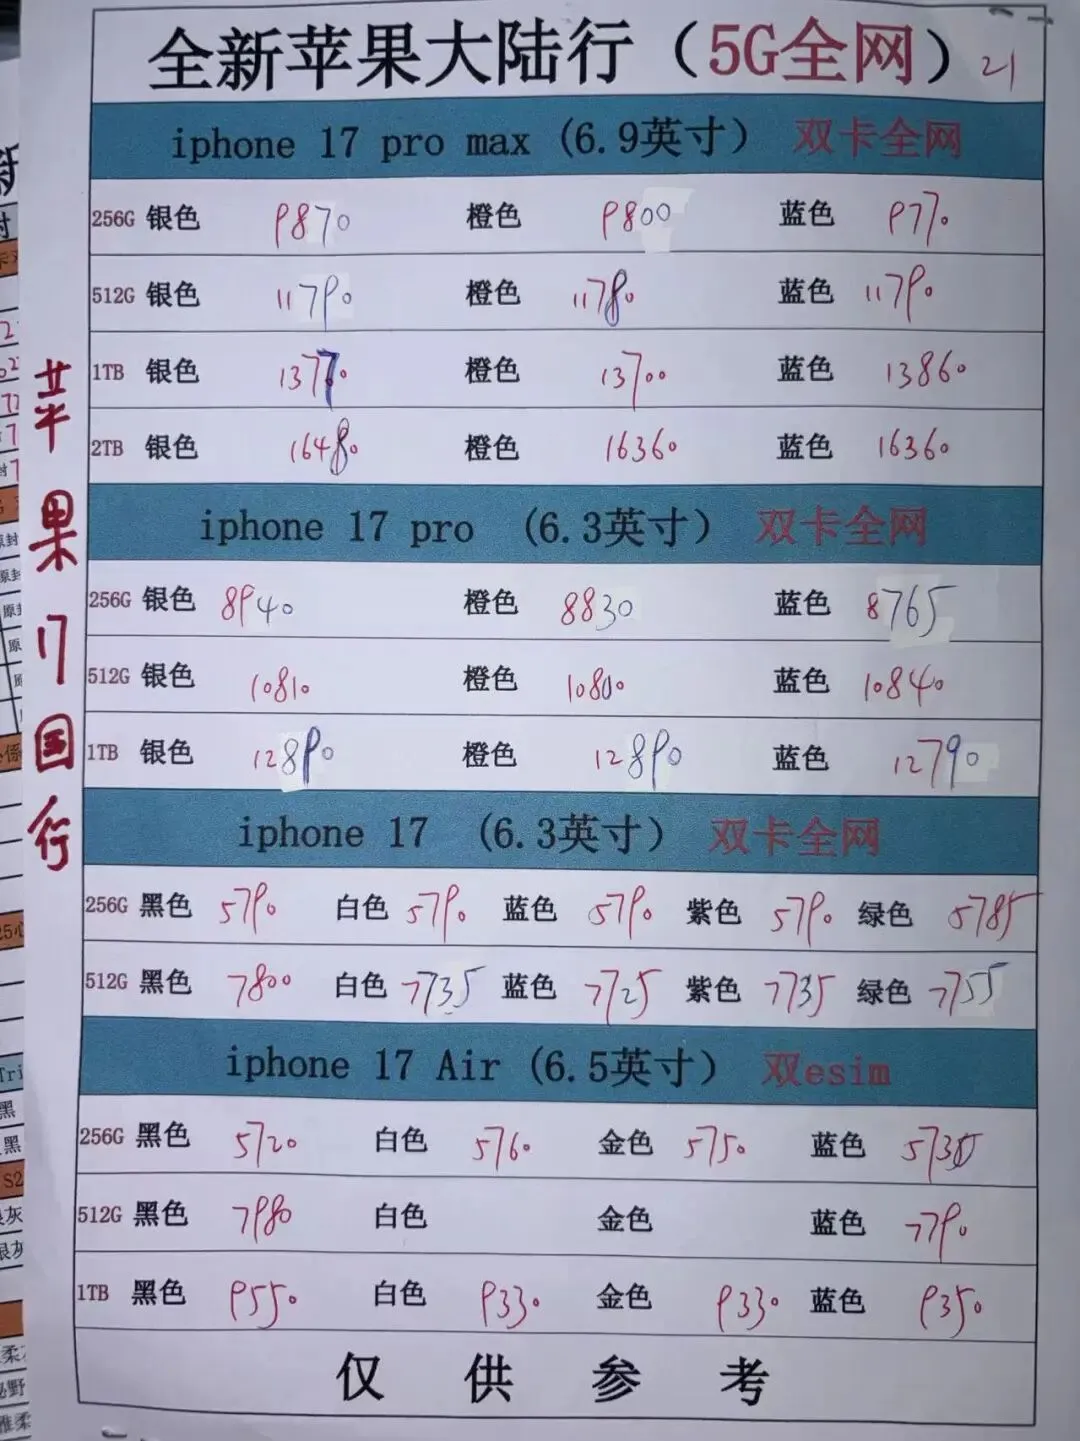 全新苹果大陆行（5G全网） 21
iphone 17 pro max (6.9英寸） 双卡全网
256G 银色 9870 橙色 9800 蓝色 9770
512G 银色 11790 橙色 11780 蓝色 11790
1TB 银色 13770 橙色 13700 蓝色 13860
2TB 银色 16480 橙色 16360 蓝色 16360
iphone 17 pro （6.3英寸） 双卡全网
256G 银色 8940 橙色 8830 蓝色 8765
512G 银色 10810 橙色 10800 蓝色 10840
1TB 银色 12890 橙色 12890 蓝色 12790
iphone 17 （6.3英寸） 双卡全网
256G 黑色 5790 白色 5790 蓝色 5790 紫色 5790 绿色 5785
512G 黑色 7800 白色 7735 蓝色 7725 紫色 7735 绿色 7755
iphone 17 Air (6.5英寸） 双esim
256G 黑色 5720 白色 5760 金色 5750 蓝色
512G 黑色 7980 白色 金色 蓝色 7790
1TB 黑色 9550 白色 9330 金色 9330 蓝色 9350
仅供参考
苹果17国行